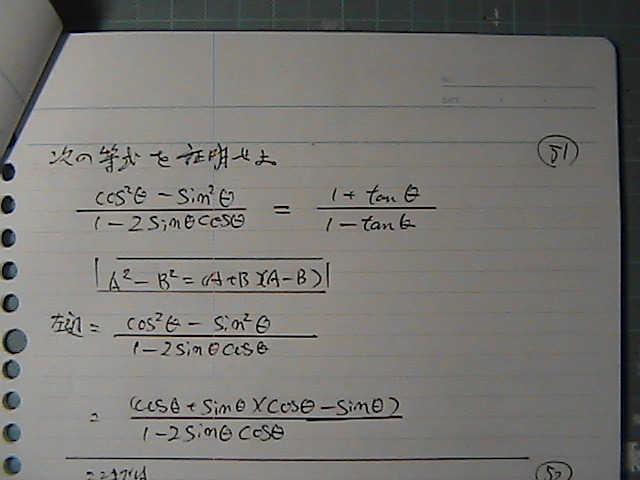 NO.
DATE
次の等式を証明せよ
51
cos²θ − sin²θ / 1 − 2 sinθ cosθ = 1 + tanθ / 1 − tanθ
A² − B² = (A + B)(A − B)
左辺 = cos²θ − sin²θ / 1 − 2 sinθ cosθ
= (cosθ + sinθ)(cosθ − sinθ) / 1 − 2 sinθ cosθ
ここまでは